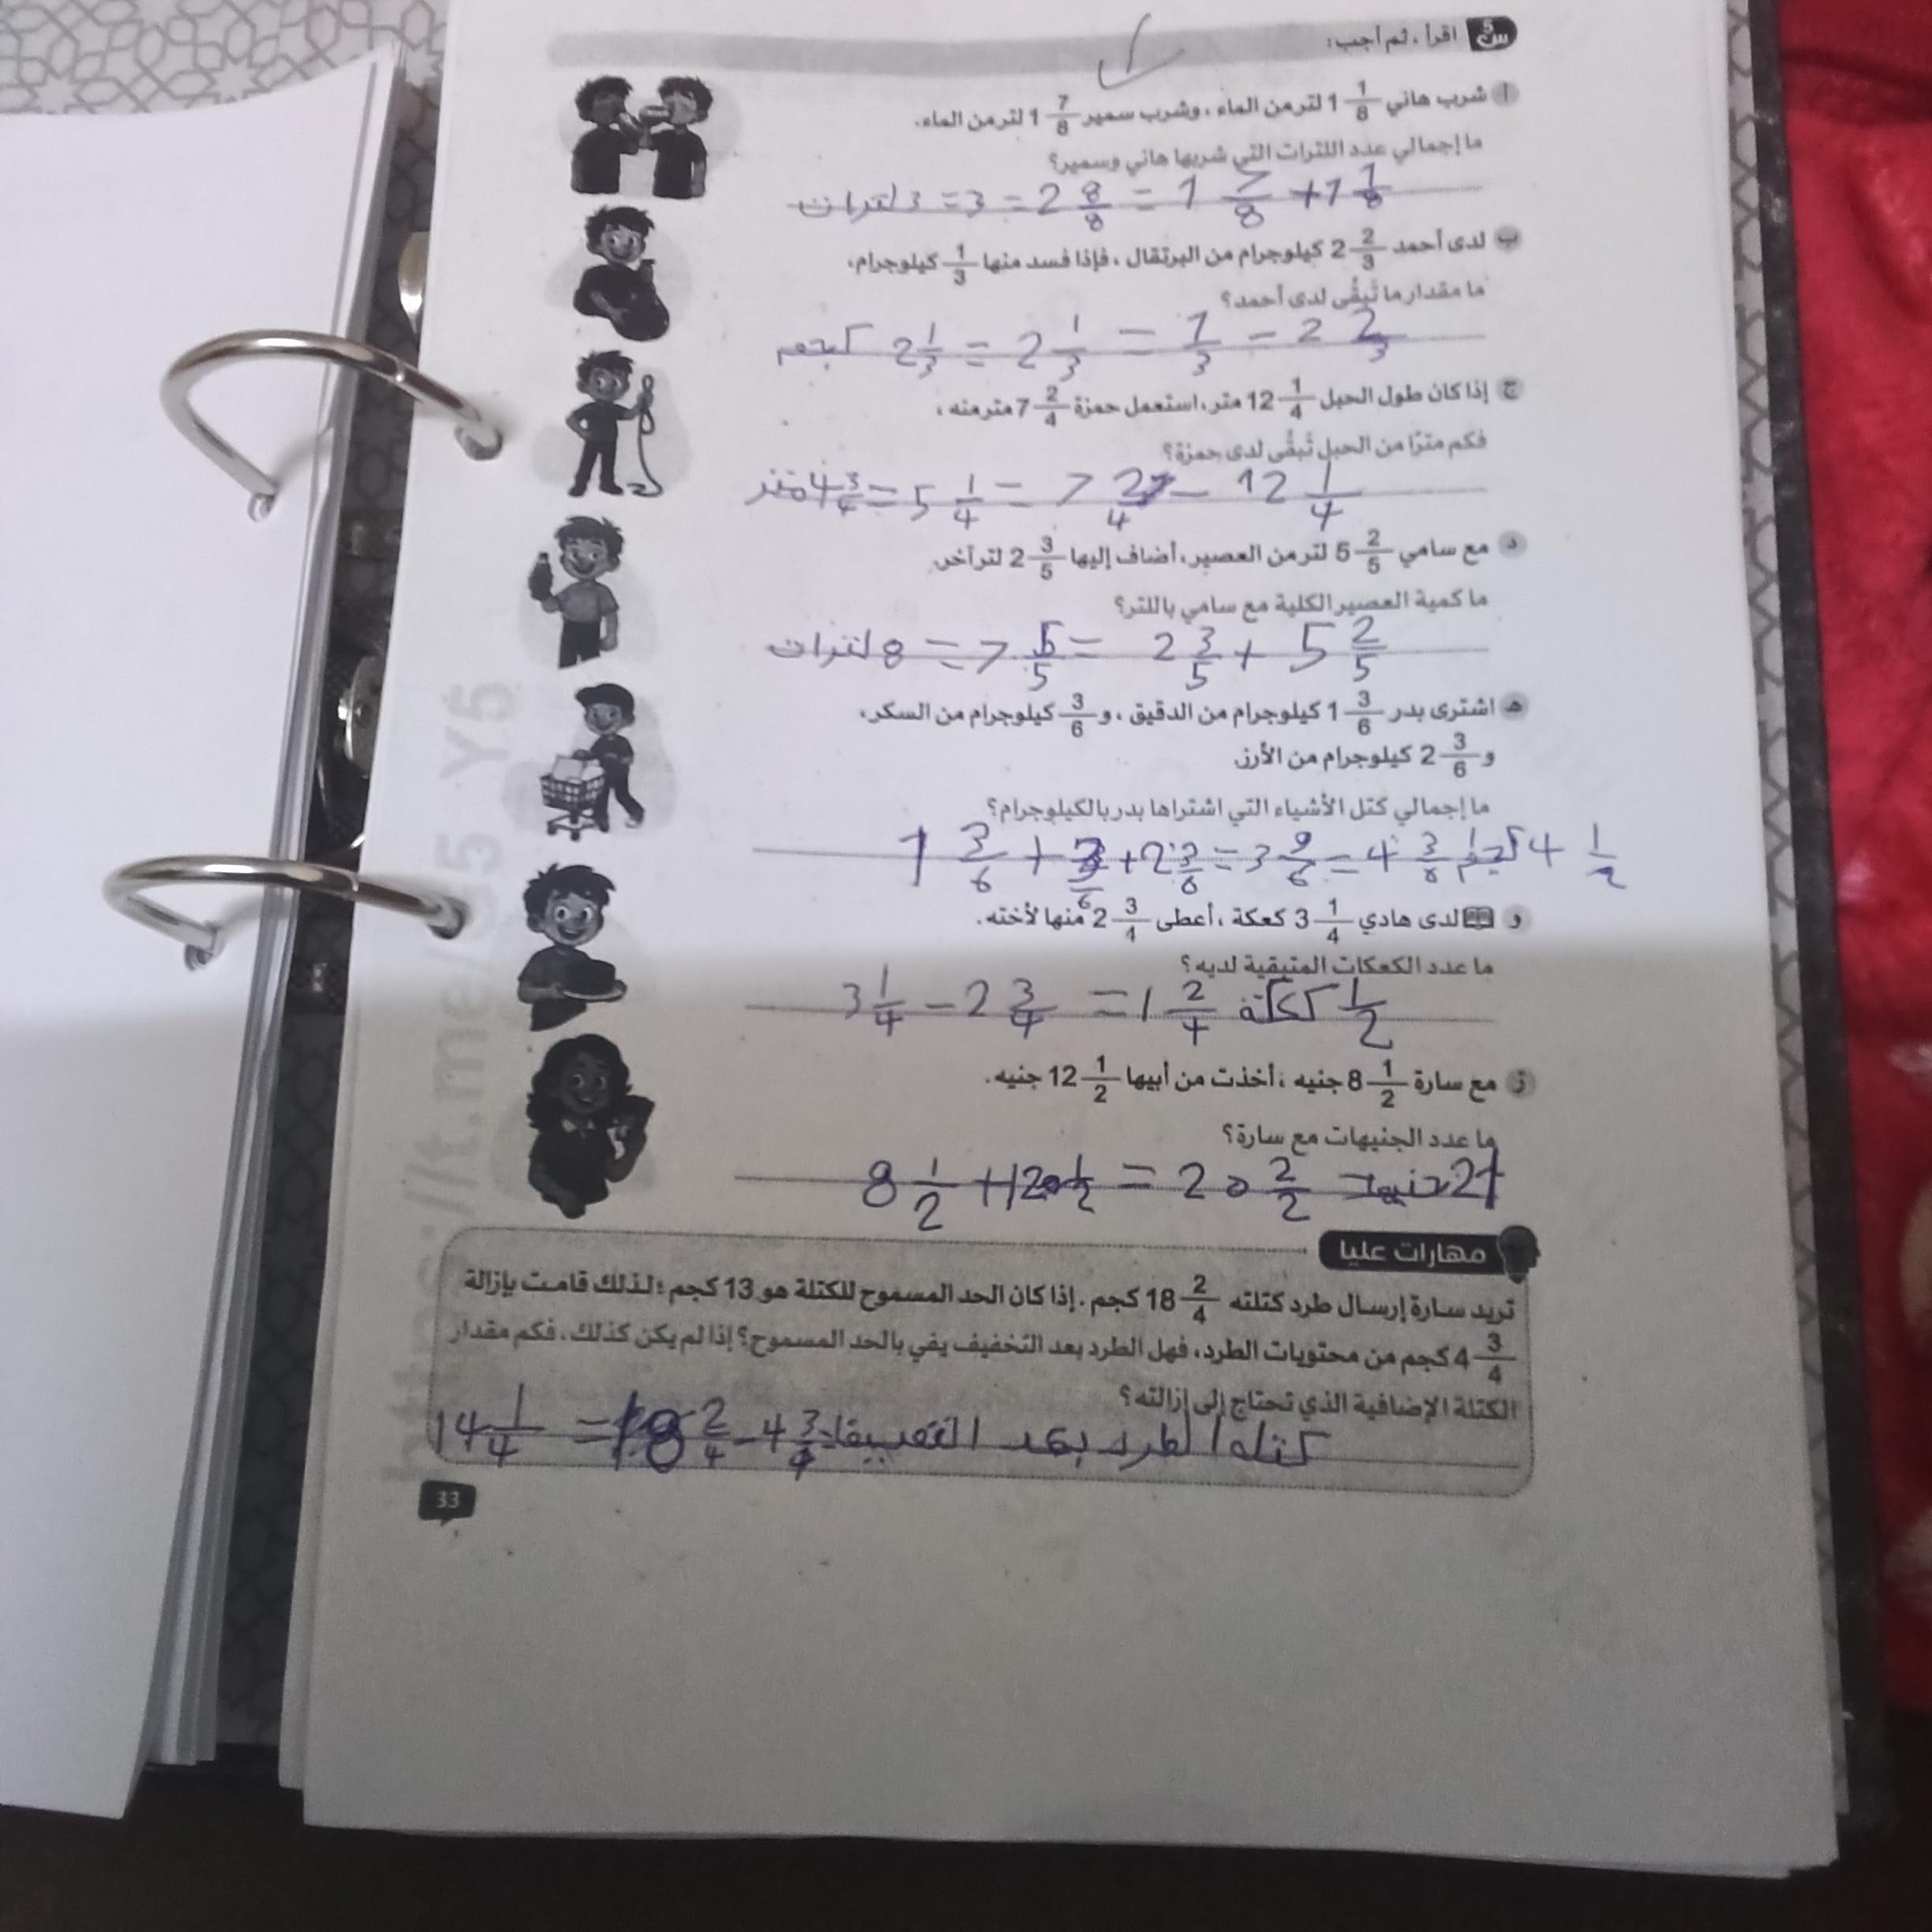 س5 اقرأ ، ثم أجب:
أ شرب هاني 1 1/8 لتر من الماء ، وشرب سمير 1 7/8 لتر من الماء.
ما إجمالي عدد اللترات التي شربها هاني وسمير؟
1 1/8 + 1 7/8 = 2 8/8 = 3 = 3 لترات
ب لدى أحمد 2 2/3 كيلوجرام من البرتقال ، فإذا فسد منها 1/3 كيلوجرام،
ما مقدار ما تبقى لدى أحمد؟
2 2/3 - 1/3 = 2 1/3 = 2 1/3 كجم
ج إذا كان طول الحبل 12 1/4 متر، استعمل حمزة 7 2/4 متر منه ،
فكم مترًا من الحبل تبقى لدى حمزة؟
12 1/4 - 7 2/4 = 5 1/4 = 4 3/4 متر
د مع سامي 5 2/5 لتر من العصير، أضاف إليها 2 3/5 لتر آخر.
ما كمية العصير الكلية مع سامي باللتر؟
5 2/5 + 2 3/5 = 7 5/5 = 8 لترات
هـ اشترى بدر 1 3/6 كيلوجرام من الدقيق ، و 3/6 كيلوجرام من السكر،
و 2 3/6 كيلوجرام من الأرز.
ما إجمالي كتل الأشياء التي اشتراها بدر بالكيلوجرام؟
1 3/6 + 3/6 + 2 3/6 = 3 9/6 = 4 3/6 كجم 4 1/2
و لدى هادي 3 1/4 كعكة ، أعطى 2 3/4 منها لأخته.
ما عدد الكعكات المتبقية لديه؟
3 1/4 - 2 3/4 = 1 2/4 1/2
ز مع سارة 8 1/2 جنيه ، أخذت من أبيها 12 1/2 جنيه.
ما عدد الجنيهات مع سارة؟
8 1/2 + 12 1/2 = 20 2/2 = 21 جنيه
مهارات عليا
تريد سارة إرسال طرد كتلته 18 2/4 كجم . إذا كان الحد المسموح للكتلة هو 13 كجم ؛ لذلك قامت بإزالة
4 3/4 كجم من محتويات الطرد، فهل الطرد بعد التخفيف يفي بالحد المسموح؟ إذا لم يكن كذلك، فكم مقدار
الكتلة الإضافية الذي تحتاج إلى إزالته؟
كتله الطرد بعد 18 2/4 - 4 3/4 = 14 1/4
33